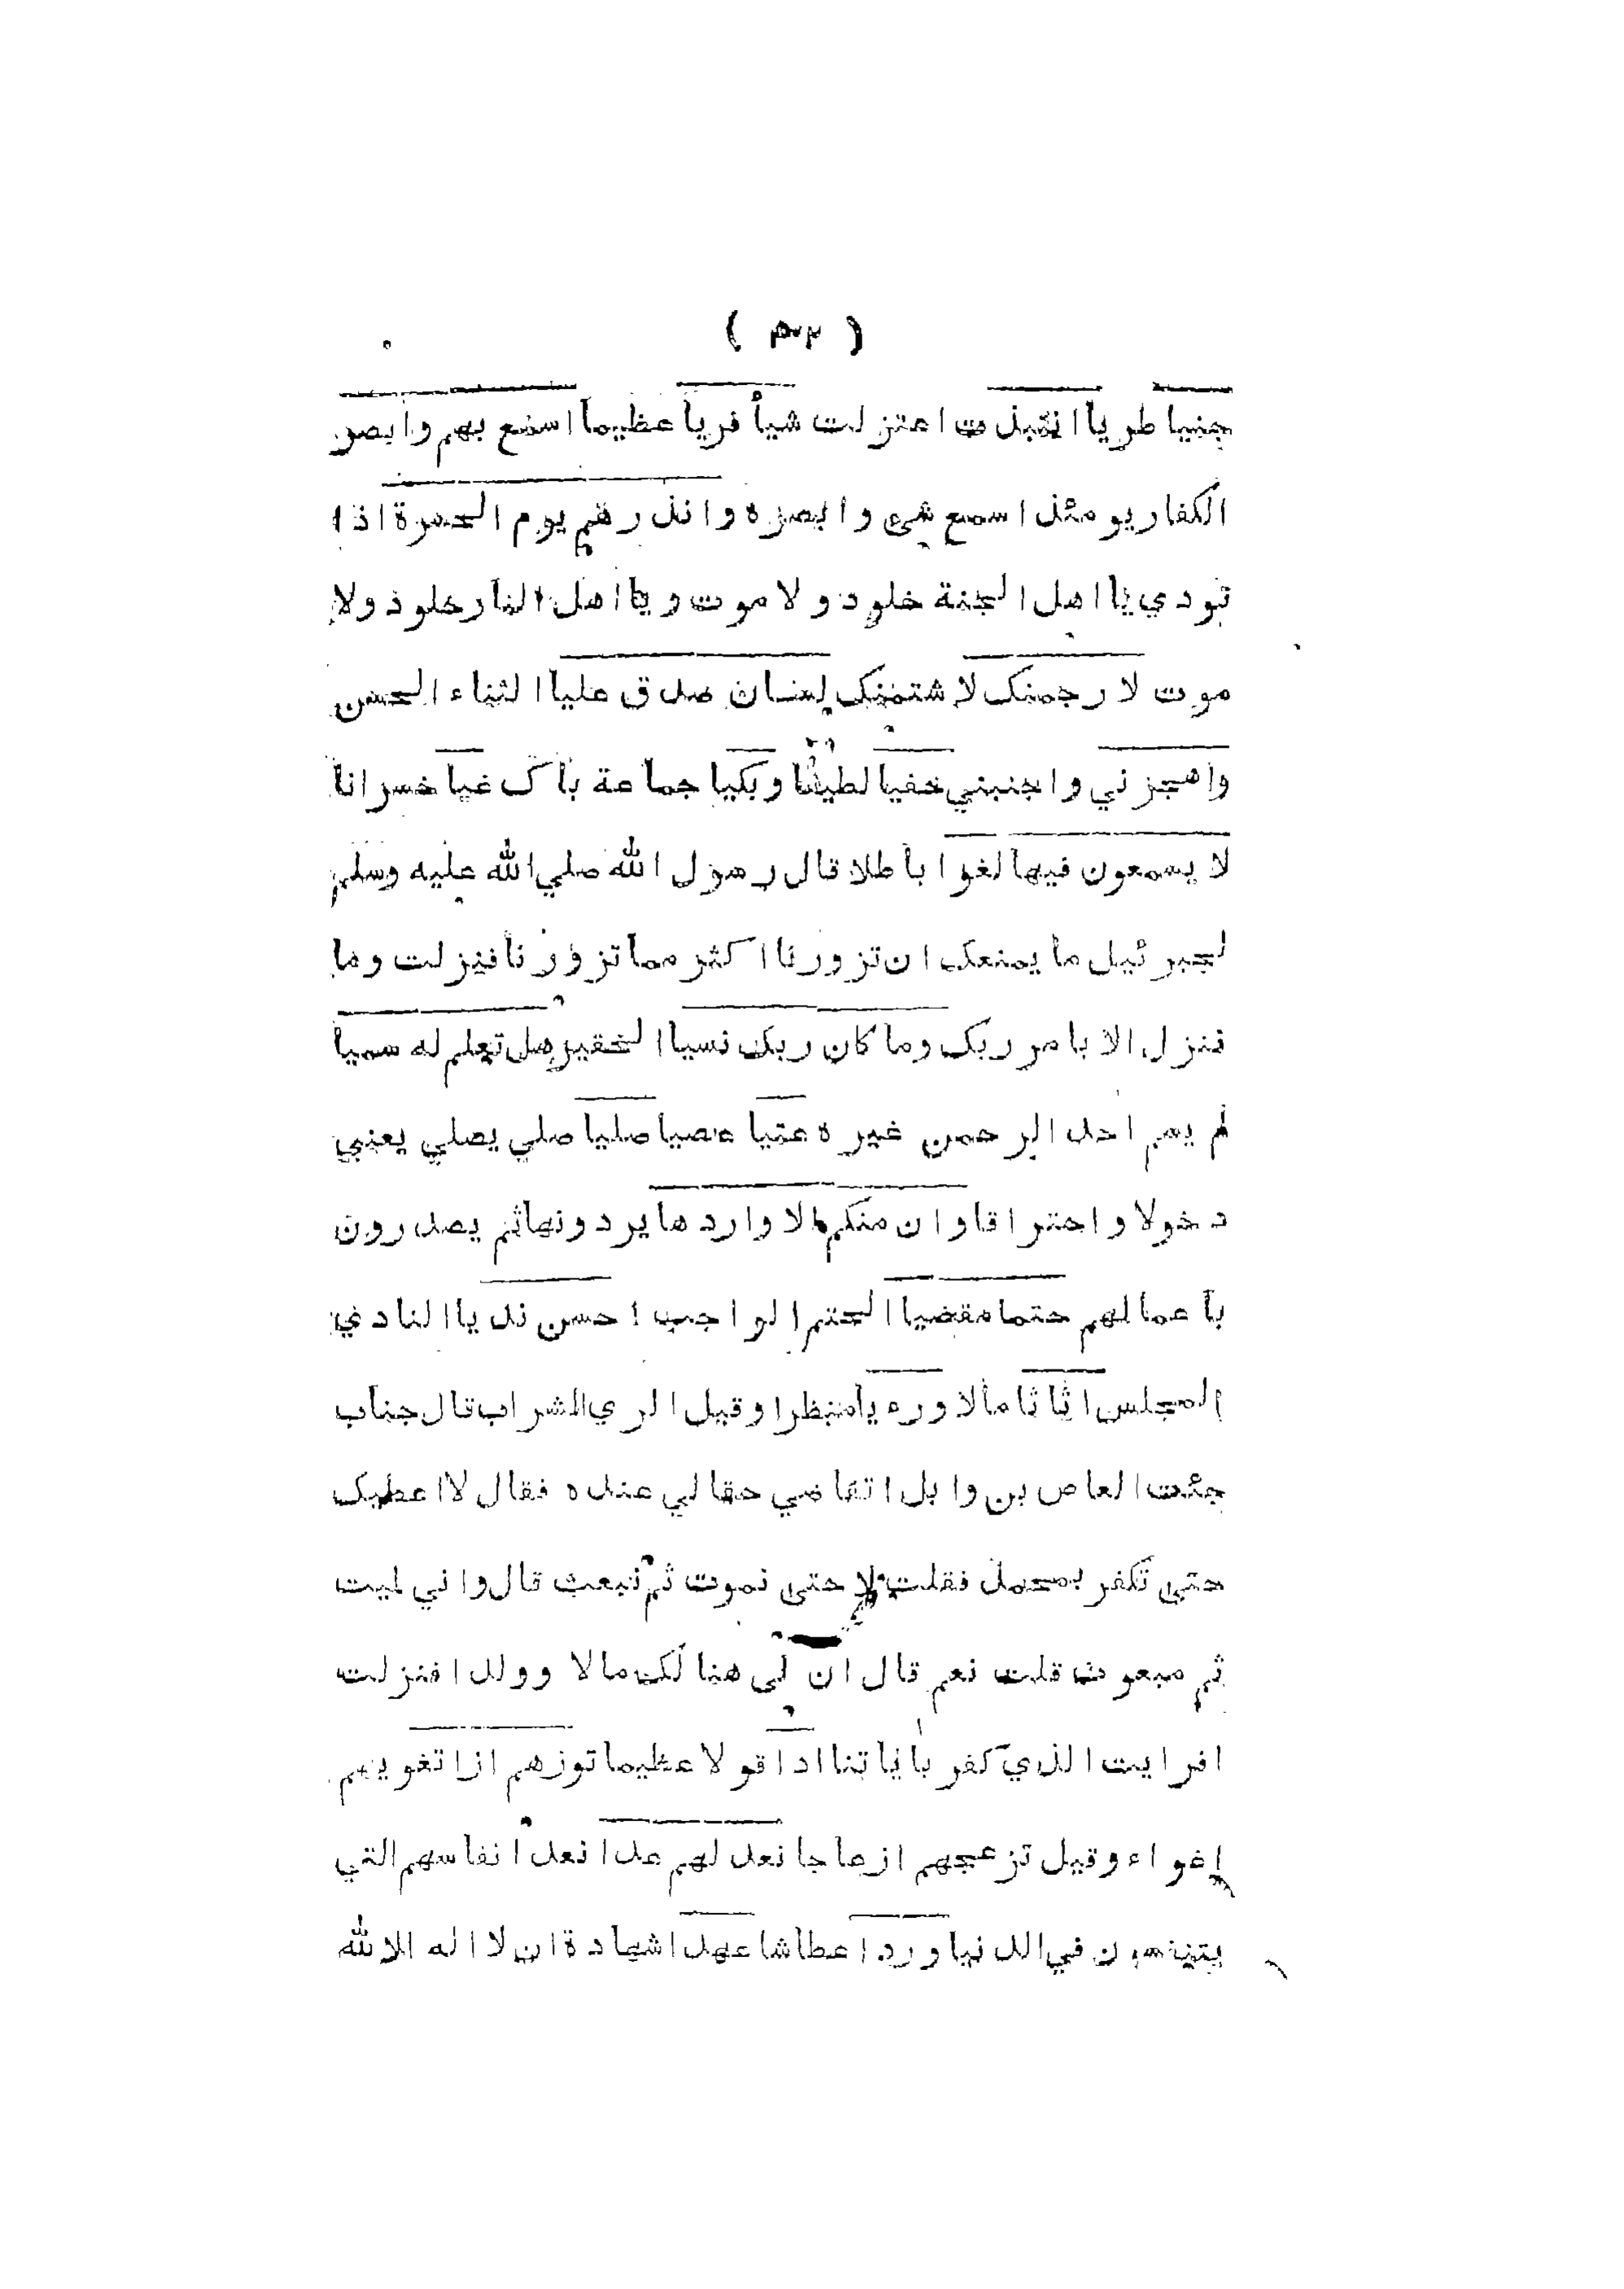 ( ٣٢ )
جنيا طريا انتبذت اعتزلت شيأ فريا عظيما اسمع بهم وابصر
الكفار يومئذ اسمع شيء وابصره وانذرهم يوم الحسرة اذا
نودي يا اهل الجنة خلود ولا موت ويا اهل النار خلود ولا
موت لارجمنك لاشتمنك لسان صدق عليا الثناء الحسن
واهجرني واجنبني حفيا لطيفا وبكيا جماعة باك غيا خسرانا
لا يسمعون فيها لغوا باطلا قال رسول الله صلي الله عليه وسلم
لجبرئيل ما يمنعك ان تزورنا اكثر مما تزورنا فنزلت وما
ننزل الا بامر ربك وما كان ربك نسيا الحقير هل تعلم له سميا
لم يسم احد الرحمن غيره عتيا عصيا صليا صلي يصلي يعني
دخولا واحتراقا وان منكم الا واردها يردونها ثم يصدرون
باعمالهم حتما مقضيا الحتم الواجب احسن نديا النادي
المجلس اثاثا مالا ورءيا منظرا وقيل الري الشراب قال جناب
جئت العاص بن وايل اتقاضي حقا لي عنده فقال لا اعطيك
حتى تكفر بمحمد فقلت لا حتى نموت ثم نبعث قال واني لميت
ثم مبعوث قلت نعم قال ان لى هنالك مالا وولدا فنزلت
افرايت الذي كفر باياتنا ادا قولا عظيما توزهم ازا تغويهم
اغواء وقيل تزعجهم ازعاجا نعد لهم عدا نعد انفاسهم التي
يتنفسون في الدنيا وردا عطاشا عهدا شهادة ان لا اله الا الله